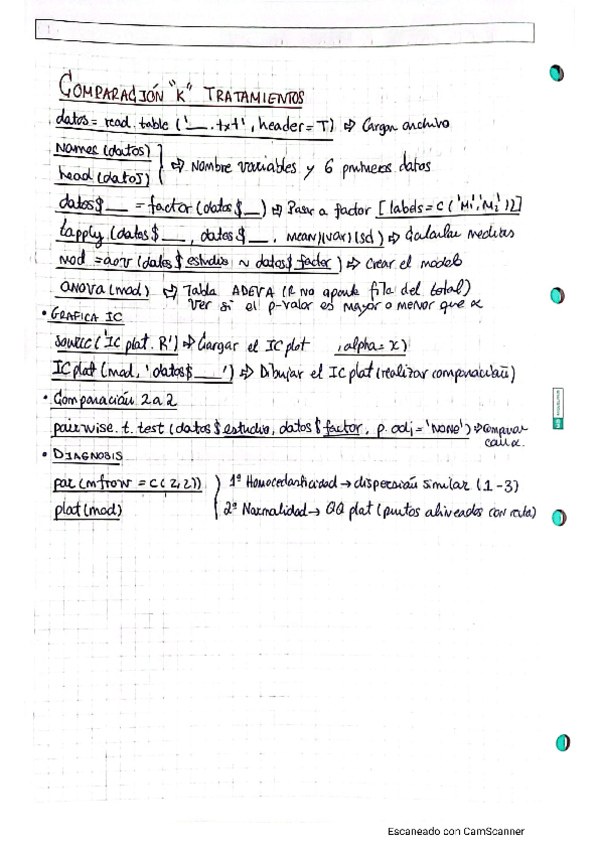 COMPARACIÓN "K" TRATAMIENTOS
datos = read.table ('__.txt', header = T) ⇒ Cargar archivo
names (datos)
head (datos) } ⇒ Nombre variables y 6 primeros datos
datos$ __ = factor (datos$ __) ⇒ Pasar a factor [labels = c ('M1','M2')]
tapply (datos$ __, datos$ __, mean)(var)(sd) ⇒ Calcular medidas
mod = aov (datos$ estudio ~ datos$ factor) ⇒ Crear el modelo
anova (mod) ⇒ Tabla ADEVA (R no aporta fila del total)
Ver si el p-valor es mayor o menor que α
• GRAFICA IC
source ('IC plot.R') ⇒ Cargar el IC plot , alpha = x)
IC plot (mod, 'datos$ __') ⇒ Dibujar el IC plot (realizar comparación)
• Comparación 2 a 2
pairwise.t.test (datos$ estudio, datos$ factor, p.adj = 'none') ⇒ comparar
con α.
• DIAGNOSIS
par (mfrow = c (2,2)) } 1º Homocedasticidad → dispersión similar (1-3)
plot (mod) 2º Normalidad → QQ plot (puntos alineados con recta)
Escaneado con CamScanner